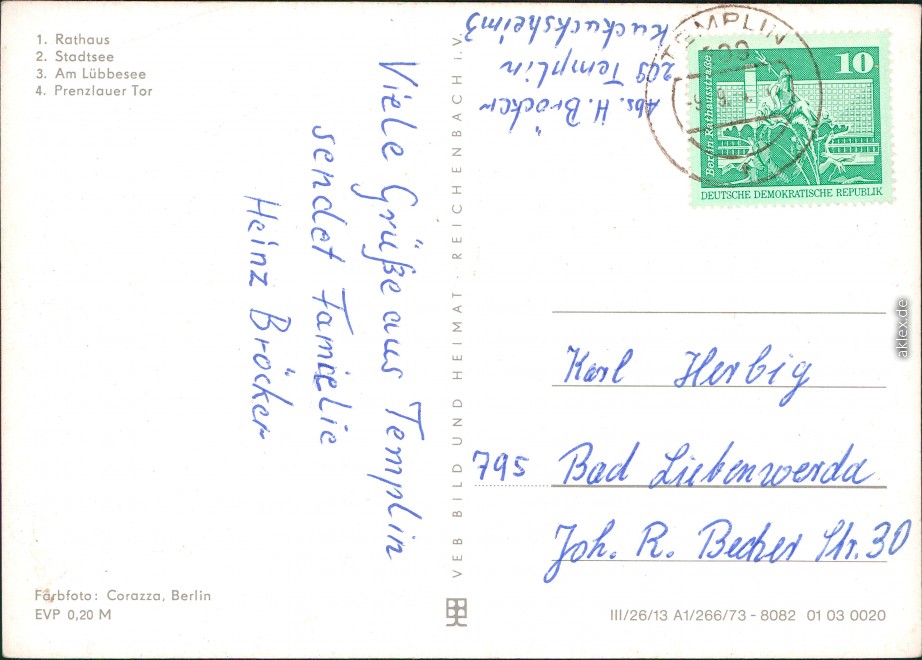 1. Rathaus
2. Stadtsee
3. Am Lübbesee
4. Prenzlauer Tor
Viele Grüße aus Templin
sendet Famielie
Heinz Bröcker
Farbfoto: Corazza, Berlin
EVP 0,20 M
VEB BILD UND HEIMAT · REICHENBACH i. V.
Abs. H. Bröcker
209 Templin
Kuckucksheim 3
TEMPLIN
209
Berlin-Rathausstraße
10
DEUTSCHE DEMOKRATISCHE REPUBLIK
Karl Herbig
795 Bad Liebenwerda
Joh. R. Becher Str. 30
III/26/13 A1/266/73 - 8082 01 03 0020
aklex.de